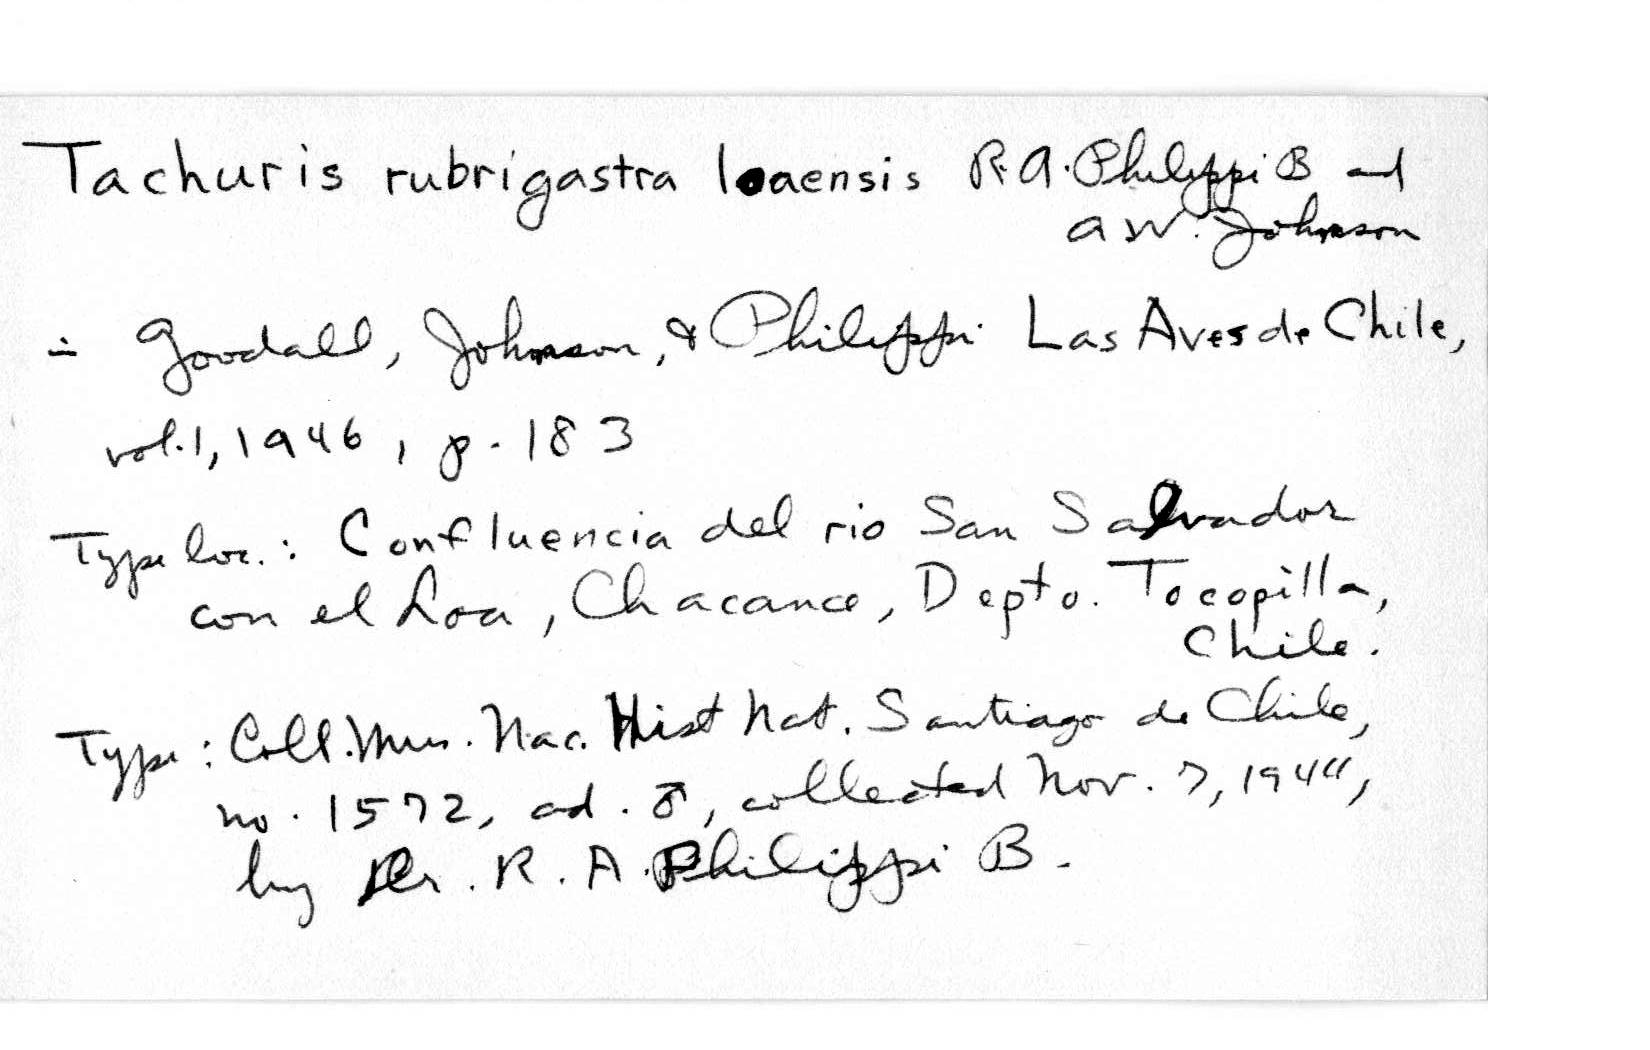 Tachuris rubrigastra loaensis R.A. Philippi B and
A W. Johnson
Goodall, Johnson, & Philippi Las Aves de Chile,
vol. 1, 1946, p. 183
Type loc.: Confluencia del rio San Salvador
con el Loa, Chacance, Depto. Tocopilla,
Chile.
Type: Coll. Mus. Nac. Hist Nat. Santiago de Chile,
no. 1572, ad. ♂, collected Nov. 7, 1944,
by Dr. R. A. Philippi B.